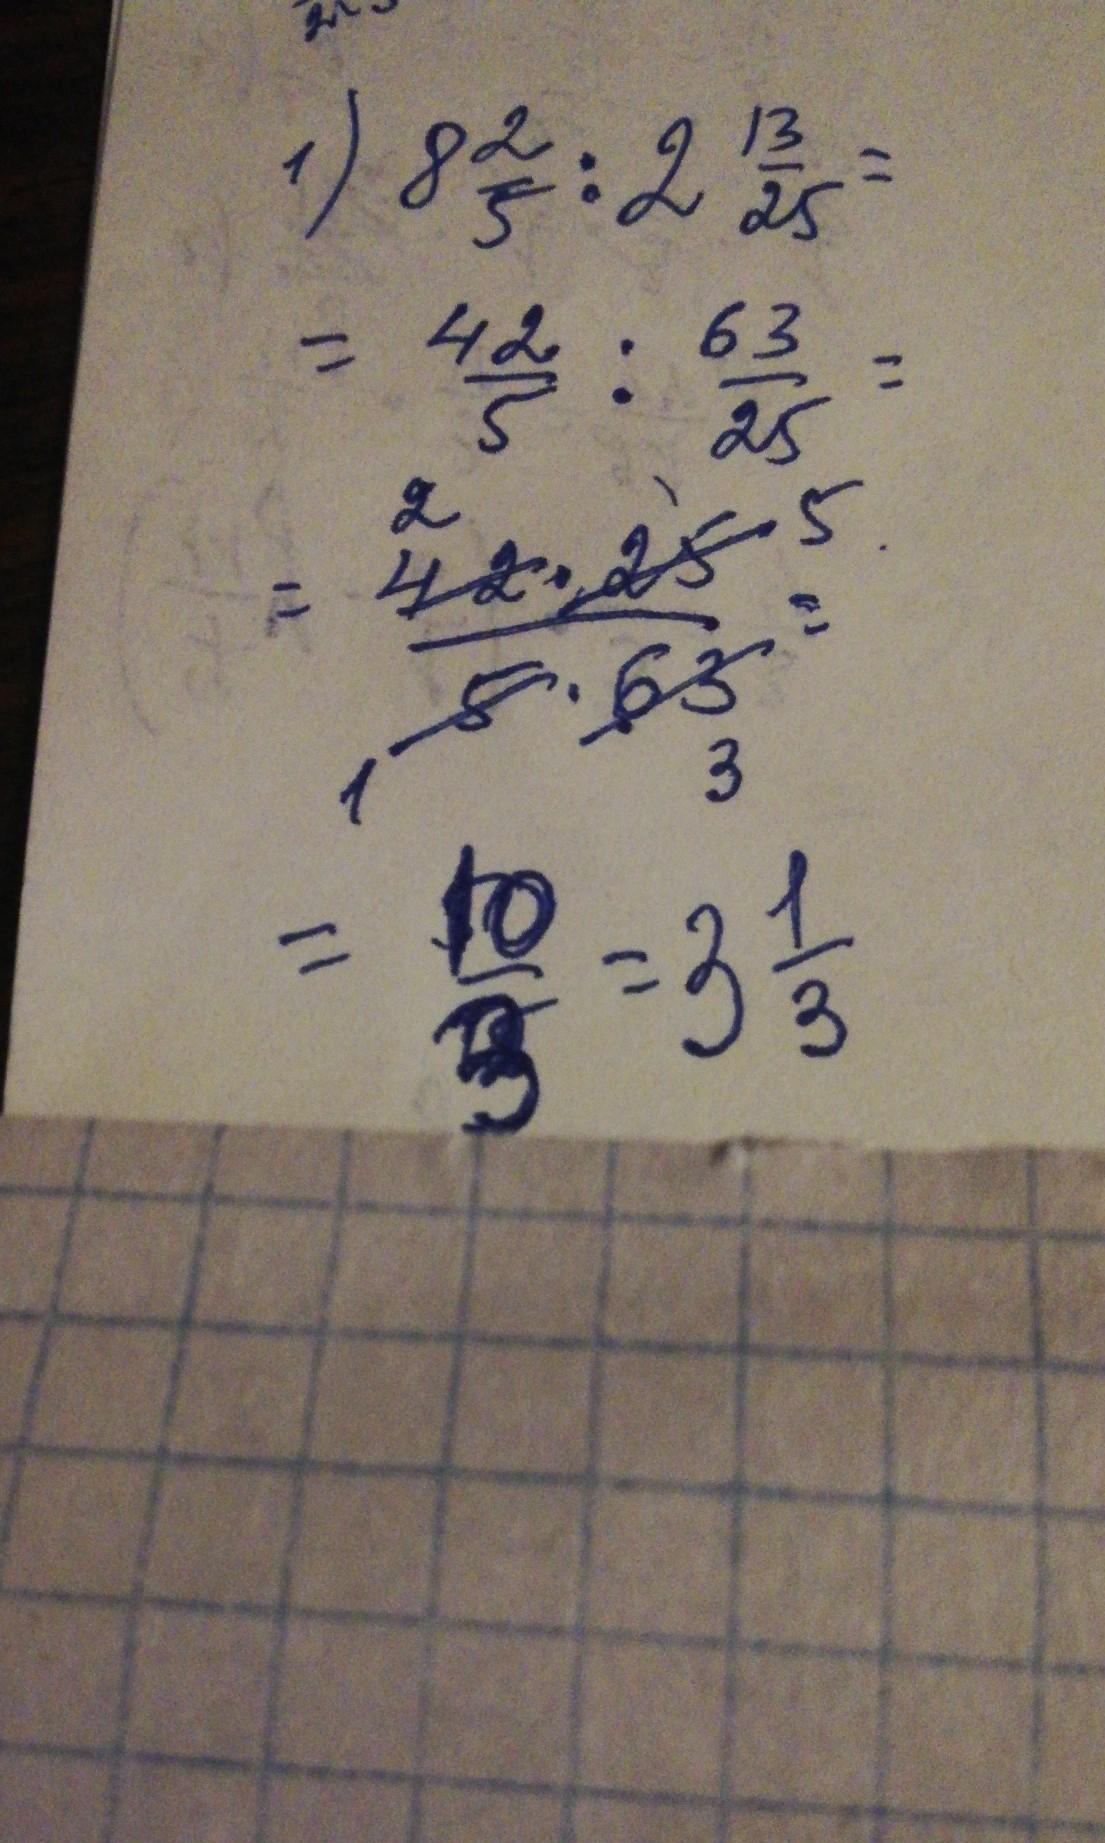 1) 8 2/5 : 2 13/25 =
= 42/5 : 63/25 =
2 5
= 42 · 25 / 5 · 63 =
1 3
= 10/3 = 3 1/3